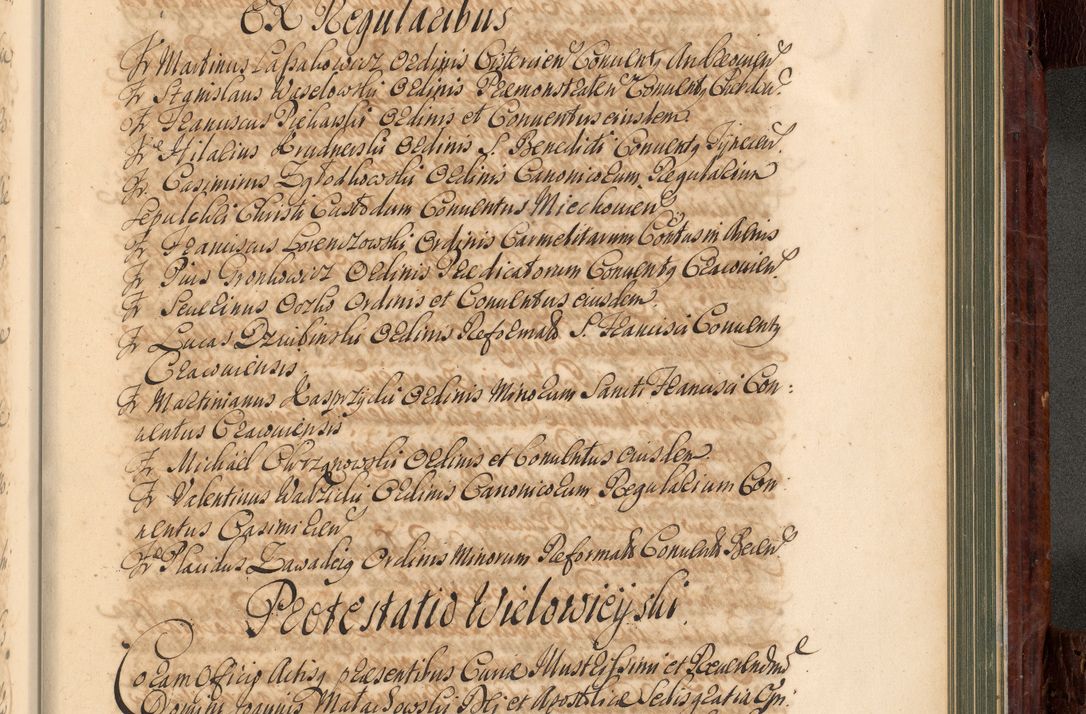 Ex Regularibus
Fr Martinus Ordinis Cisterien Conuent9 Andreouien
Fr Stanislaus Weselowski Ordinis Præmonstraten Conuent9
Fr Franciscus Piekarski Ordinis et Conuentus eiusdem
Fr Hilarius Brudnerski Ordinis S. Benedicti Conuent9 Tynecen
Fr. Casimirus Zgłodkowski Ordinis Canonicorum Regularium
Sepulchri Christi Custodum Conuentus Miechouien
Fr Franciscus Lorenczowski Ordinis Carmelitarum Contus in Arenis
Fr Pius Gronkowicz Ordinis Prædicatorum Conuent9 Cracouien
Fr Seuerinus Ordinis et Conuentus eiusdem
Fr Lucas Dziubinski Ordinis Reformat S. Francisci Conuent9
Cracouiensis
Fr Martinianus Kasprzycki Ordinis Minorum Sancti Francisci Con:
uentus Cracouiensis
Fr Michael Chrzanowski Ordinis et Conuentus eiusdem
Fr Valentinus Ordinis Canonicorum Regularium Con
uentus Casimirien
Fr Placidus Zawadzig Ordinis Minorum Reformat Conuent Becen
Protestatio Wielowieyski
Coram Officio Actisq præsentibus Curiæ Illustrissimi et Reuerendmi
Domini Joannis Małachowski Dei et Apostolicæ Sedis gratia Epi: